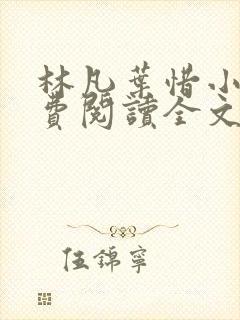 林凡葉惜小
費閱讀全文
伍錦寧